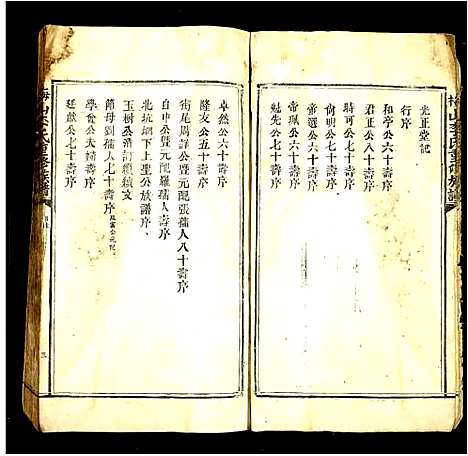 光正堂記
行序
和亭公六十壽序
君正公八十壽序
時可公六十壽序
尙明公七十壽序
帝選公六十壽序
帝珮公六十壽序
魁先公七十壽序
卓然公六十壽序
隆友公五十壽序
街尾周詳公暨元配張孺人八十壽序
自申公暨元配羅孺人壽序
北坑墈下上聖公族譜序
玉樹公消訂續文
節母劉孺人七十壽序
學會公夫婦壽序
廷獻公七十壽序
三